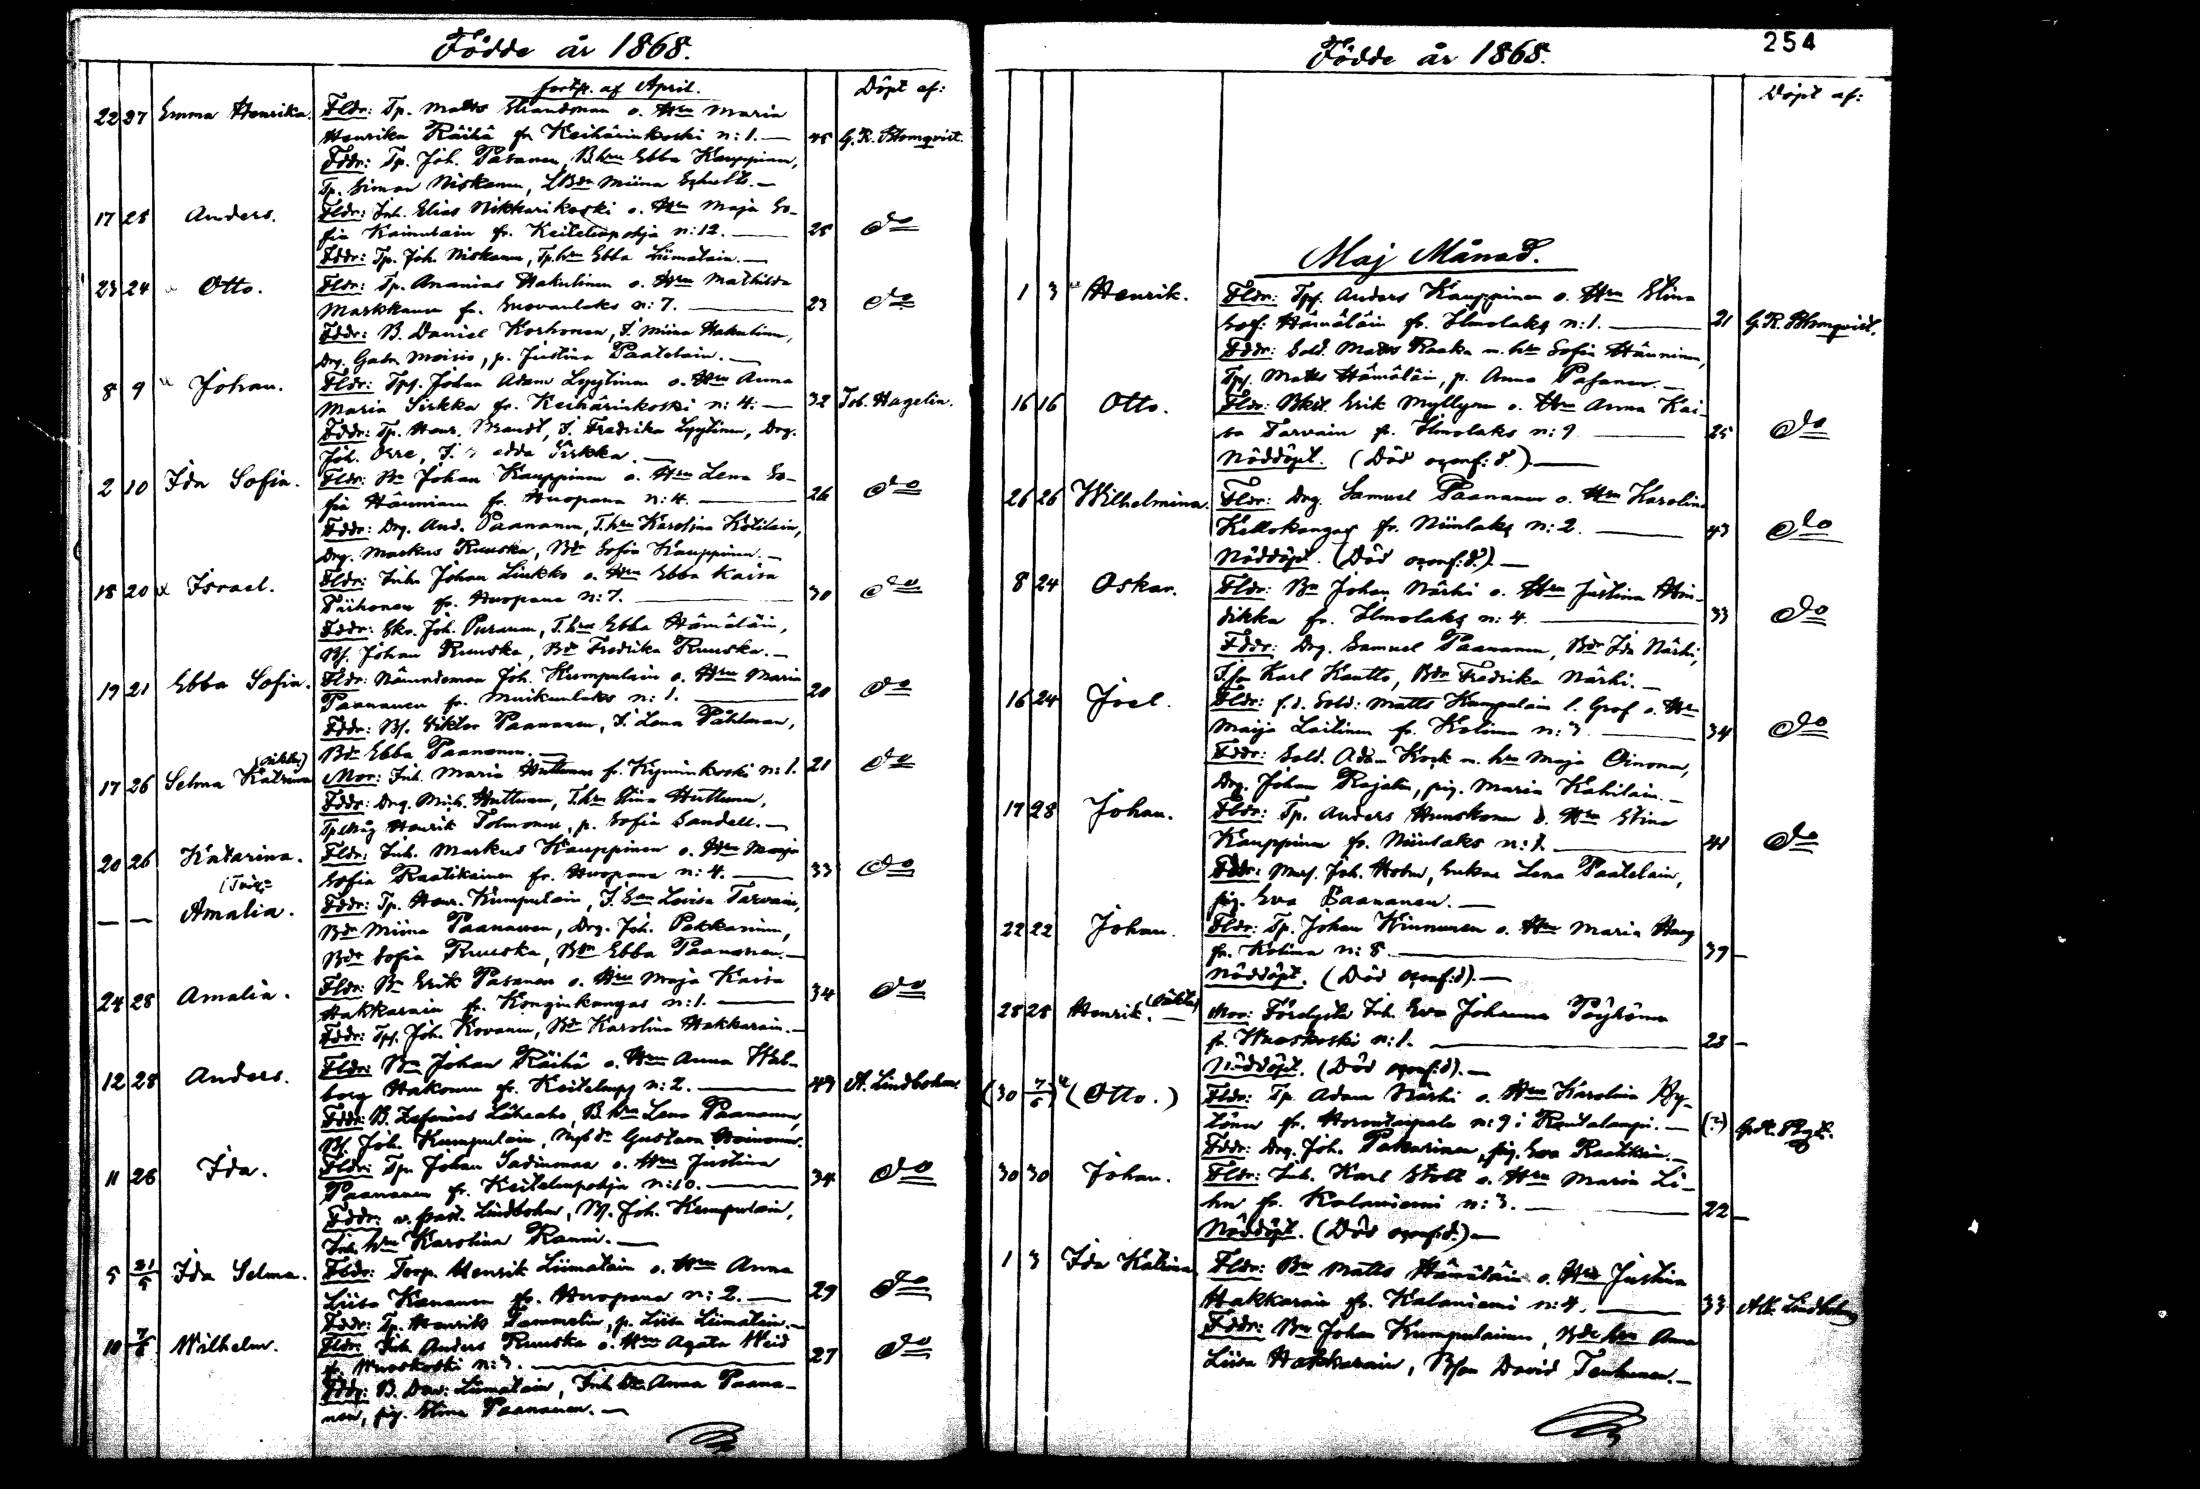 Födde år 1868.
forts. af April.
Döpt af:
22 27 Emma Henrika. Fldr: Tp. Matts Strandman o. Hru Maria
Henrika Räihä fr. Keihärinkoski n: 1. — 45 G. R. Blomqvist.
Fddr: Tp. Joh. Pasanen, B.hru Ebba Kauppinen,
Tp. Simon Niskanen, Miina
17 25 Anders. Fldr: Inh. Elias Nikkarikoski o. Hru Maja So-
fia Kainulain fr. Keitelepohja n: 12. — 25 do
Fddr: Tp. Joh. Niskanen, Tp.hru Ebba Liimatain. —
23 24 Otto. Fldr: Tp. Ananias Hakulinen o. Hru Mathilda
Markkanen fr. Suovanlaks n: 7. — 23 do
Fddr: B. Daniel Korhonen, I. Miina Hakulinen,
Drg. Moisio, p. Justina Paatelain. —
8 9 Johan. Fldr: Tpf. Johan Adam Lyytinen o. Hru Anna
Maria Sirkka fr. Keihärinkoski n: 4. — 32 Joh. Hagelin.
Fddr: Tp. Henr. Brandt, I. Fredrika Lyytinen, Drg.
Joh. Orre, I. Edda Sirkka. —
2 10 Ida Sofia. Fldr: Bn Johan Kauppinen o. Hru Lena So-
fia Hänninen fr. Huopana n: 4. — 26 do
Fddr: Drg. And. Paananen, I.hru Karolina Kötilain,
Drg. Markus Ruuska, Bdr Sofia Kauppinen. —
18 20 Israel. Fldr: Inh. Johan Linkko o. Hru Ebba Kaisa
Tiihonen fr. Huopana n: 7. — 30 do
Fddr: Sko. Joh. Puranen, I.hru Ebba Hämäläin,
Bf. Johan Ruuska, Bdr Fredrika Ruuska. —
19 21 Ebba Sofia. Fldr: Nämndeman Joh. Kumpulain o. Hru Maria
Paananen fr. Muikunlaks n: 1. — 20 do
Fddr: Bf. Viktor Paananen, I. Lena Påhlman,
Bdr Ebba Paananen. —
17 26 Selma Katrina (oäkta) Mor: Inh. Maria Huttunen fr. Kyminkoski n: 1. 21 do
Fddr: Drg. Mich. Huttunen, I.hru Stina Huttunen,
Henrik Tolmonen, p. Sofia Sandell. —
20 26 Katarina. Fldr: Inh. Markus Kauppinen o. Hru Maja
Sofia Raatikainen fr. Huopana n: 4. — 33 do
— — Amalia. Fddr: Tp. Henr. Kumpulain, Lovisa Tarvain,
Bdr Miina Paananen, Drg. Joh. Pekkarinen,
Bdr Sofia Ruuska, Bdr Ebba Paananen. —
24 28 Amalia. Fldr: Bn Erik Pasanen o. Hru Maja Kaisa
Hakkarain fr. Konginkangas n: 1. — 34 do
Fddr: Tpf. Joh. Kovanen, Bdr Karolina Hakkarain. —
12 28 Anders. Fldr: Bn Johan Räihä o. Hru Anna Wal-
borg Hakonen fr. Keitelepg n: 2. — 43 A. Lindbohm.
Fddr: B. Zefanias Läheaho, B.hru Lena Paananen,
Bf. Joh. Kumpulain, Gustava Hainonen.
11 26 Ida. Fldr: Tp. Johan Sadinmaa o. Hru Justina
Paananen fr. Keitelepohja n: 10. — 34 do
Fddr: v. past. Lindbohm, Bf. Joh. Kumpulain,
Inh.hru Karolina Ranni. —
5 31/5 Ida Selma. Fldr: Torp. Henrik Liimatain o. Hru Anna
Liisa Kananen fr. Huopana n: 2. — 29 do
Fddr: Tp. Henrik Tammelin, p. Liisa Liimatain. —
10 7/6 Wilhelm. Fldr: Inh. Anders Ruuska o. Hru Agata Weid
fr. Wuoskoski n: 3. — 27 do
Fddr: B. Dav: Liimatain, Inh. Dr. Anna Paana-
nen, pig. Stina Paananen. —
Födde år 1868.
254
Döpt af:
Maj Månad.
1 3 Henrik. Fldr: Tpf. Anders Kauppinen o. Hru Stina
Sof: Hämäläin fr. Ilmolaks n: 1. — 21 G. R. Blomqvist.
Fddr: Sold. Matts Raaka m. hru Sofia Hänninen,
Tpf. Matts Hämäläin, p. Anna Pasanen. —
16 16 Otto. Fldr: Erik Myllynen o. Hru Anna Kai-
sa Tarvain fr. Ilmolaks n: 9 — 25 do
Nöddöpt. (Död ogenf: d.) —
26 26 Wilhelmina. Fldr: Drg. Samuel Paananen o. Hru Karolina
Kellokangas fr. Niinlaks n: 2. — 43 do
Nöddöpt. (Död ogenf: d.) —
8 24 Oskar. Fldr: Bn Johan Närhi o. Hru Justina Hin-
dikka fr. Ilmolaks n: 4. — 33 do
Fddr: Drg. Samuel Paananen, Bdr Ida Närhi,
Karl Kautto, Bdr Fredrika Närhi. —
16 24 Joel. Fldr: f.d. Sold. Matts Kumpulain l. Grof o. Hru
Maija Laitinen fr. Kolima n: 3. — 34 do
Fddr: Sold. Adam Kock m. hru Maja Oinonen,
Drg. Johan Rajalin, pig. Maria Kahilain. —
17 28 Johan. Fldr: Tp. Anders Hunskonen o. Hru Stina
Kauppinen fr. Niinlaks n: 2. — 41 do
Fddr: Joh. Holm, Enkan Lena Paatelain,
pig. Eva Paananen. —
22 22 Johan. Fldr: Tp. Johan Kinnunen o. Hru Maria Haag
fr. Kolima n: 8. — 39 —
Nöddöpt. (Död ogenf: d). —
28 28 Henrik. (oäkta) Mor: Förelysta Inh. Eva Johanna Pöyhönen
fr. Wuoskoski n: 1. — 23 —
Nöddöpt. (Död ogenf: d). —
(30 7/6) (Otto.) Fldr: Tp. Adam Närhi o. Hru Karolina Py-
fr. Horontaipale n: 9 i Rautalampi. — (?)
Fddr: Drg. Joh. Pakarinen, pig. Eva Raatikain. —
30 30 Johan. Fldr: Inh. Karl Stoll o. Hru Maria Li-
hu fr. Kolaniemi n: 3. — 22 —
Nöddöpt. (Död ogenf: d.) —
1 3 Ida Katrina. Fldr: Bn Matts Hämäläin o. Hru Justina
Hakkarain fr. Kalaniemi n: 4. — 33 Alb. Lindbohm
Fddr: Bn Johan Kumpulainen, Bde hru Anna
Liisa Hakkarain, Bson David Tenhunen. —